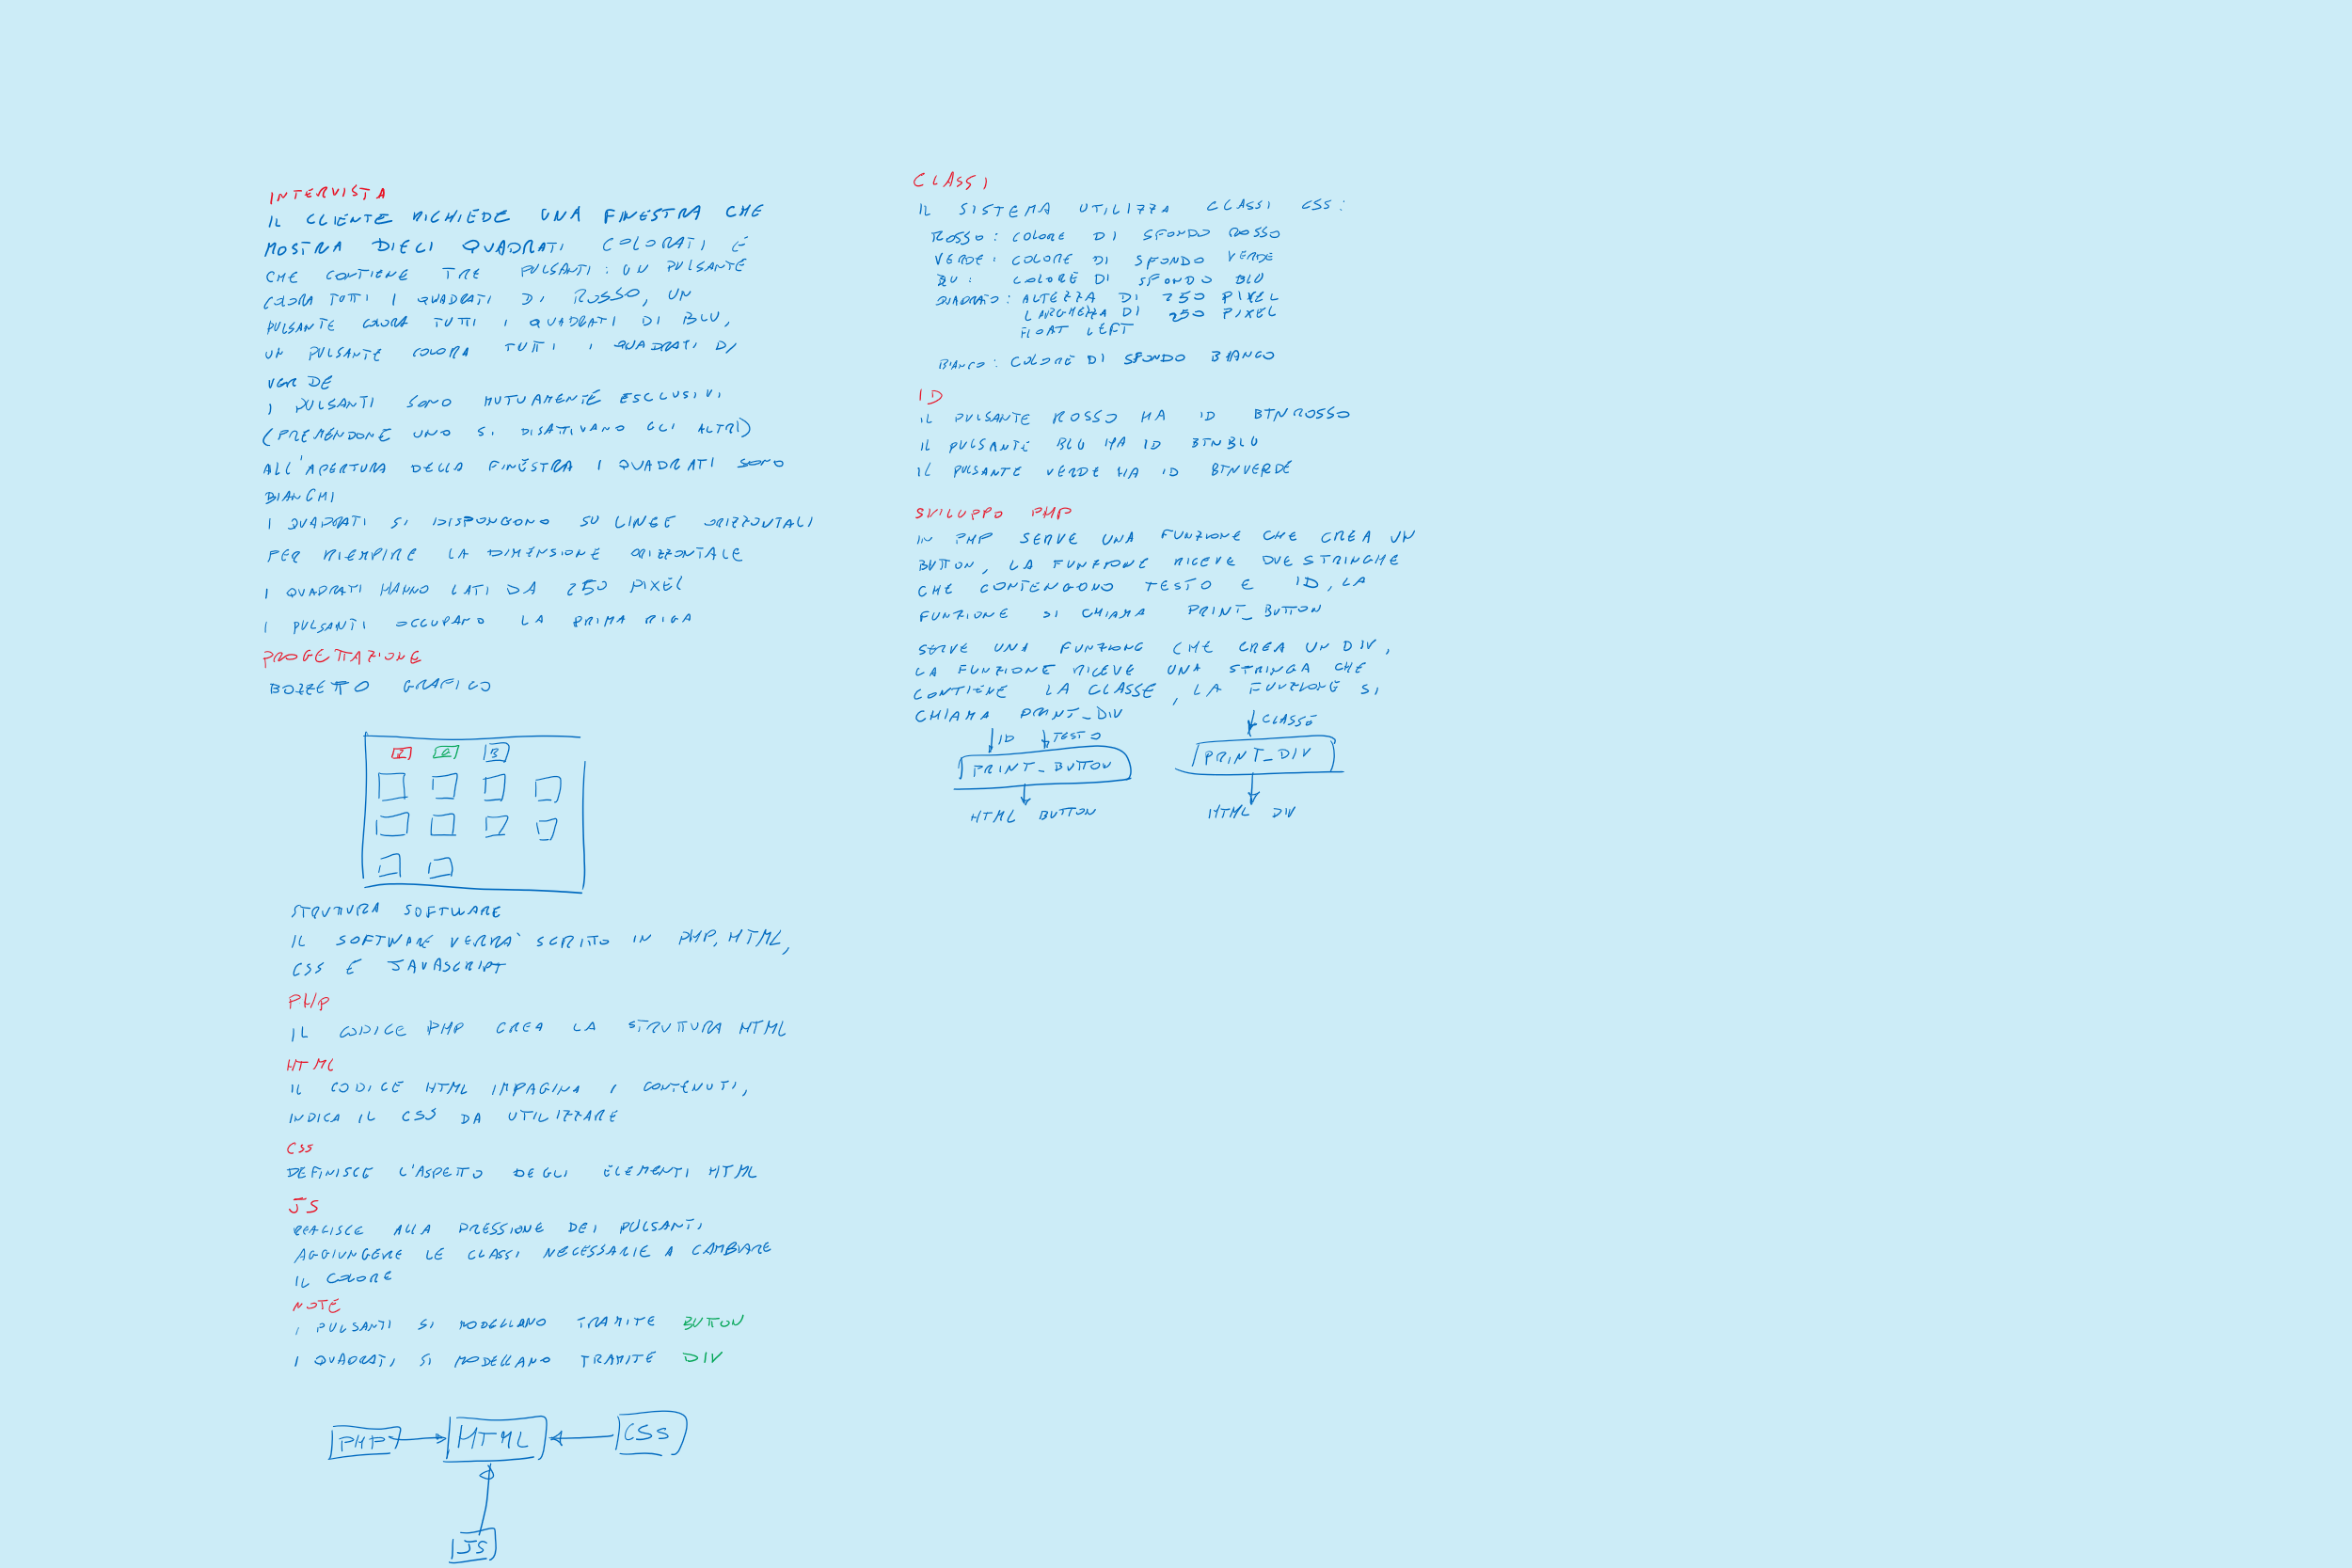 INTERVISTA
IL CLIENTE RICHIEDE UNA FINESTRA CHE
MOSTRA DIECI QUADRATI COLORATI E
CHE CONTIENE TRE PULSANTI: UN PULSANTE
COLORA TUTTI I QUADRATI DI ROSSO, UN
PULSANTE COLORA TUTTI I QUADRATI DI BLU,
UN PULSANTE COLORA TUTTI I QUADRATI DI
VERDE
I PULSANTI SONO MUTUAMENTE ESCLUSIVI
(PREMENDONE UNO SI DISATTIVANO GLI ALTRI)
ALL'APERTURA DELLA FINESTRA I QUADRATI SONO
BIANCHI
I QUADRATI SI DISPONGONO SU LINEE ORIZZONTALI
PER RIEMPIRE LA DIMENSIONE ORIZZONTALE
I QUADRATI HANNO LATI DA 250 PIXEL
I PULSANTI OCCUPANO LA PRIMA RIGA
PROGETTAZIONE
BOZZETTO GRAFICO
B
STRUTTURA SOFTWARE
IL SOFTWARE VERRA' SCRITTO IN PHP, HTML,
CSS E JAVASCRIPT
PHP
IL CODICE PHP CREA LA STRUTTURA HTML
HTML
IL CODICE HTML IMPAGINA I CONTENUTI,
INDICA IL CSS DA UTILIZZARE
CSS
DEFINISCE L'ASPETTO DEGLI ELEMENTI HTML
JS
REAGISCE ALLA PRESSIONE DEI PULSANTI
AGGIUNGERE LE CLASSI NECESSARIE A CAMBIARE
IL COLORE
NOTE
I PULSANTI SI MODELLANO TRAMITE BUTTON
I QUADRATI SI MODELLANO TRAMITE DIV
PHP HTML CSS
JS
CLASSI
IL SISTEMA UTILIZZA CLASSI CSS:
ROSSO: COLORE DI SFONDO ROSSO
VERDE: COLORE DI SFONDO VERDE
BLU: COLORE DI SFONDO BLU
QUADRATO: ALTEZZA DI 250 PIXEL
LARGHEZZA DI 250 PIXEL
FLOAT LEFT
BIANCO: COLORE DI SFONDO BIANCO
ID
IL PULSANTE ROSSO HA ID BTNROSSO
IL PULSANTE BLU HA ID BTNBLU
IL PULSANTE VERDE HA ID BTNVERDE
SVILUPPO PHP
IN PHP SERVE UNA FUNZIONE CHE CREA UN
BUTTON, LA FUNZIONE RICEVE DUE STRINGHE
CHE CONTENGONO TESTO E ID, LA
FUNZIONE SI CHIAMA PRINT_BUTTON
SERVE UNA FUNZIONE CHE CREA UN DIV,
LA FUNZIONE RICEVE UNA STRINGA CHE
CONTIENE LA CLASSE, LA FUNZIONE SI
CHIAMA PRINT_DIV
ID TESTO CLASSE
PRINT_BUTTON PRINT_DIV
HTML BUTTON HTML DIV